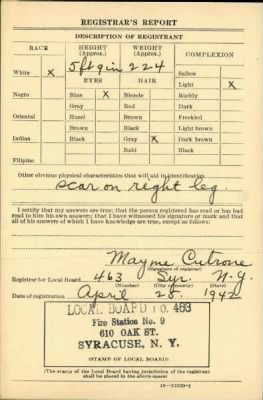 REGISTRAR'S REPORT
DESCRIPTION OF REGISTRANT
RACE HEIGHT (Approx.) WEIGHT (Approx.) COMPLEXION
5ft 9in 224
White X Sallow
EYES HAIR Light X
Negro Blue X Blonde Ruddy
Gray Red Dark
Oriental Hazel Brown Freckled
Brown Black Light brown
Indian Black Gray X Dark brown
Bald Black
Filipino
Other obvious physical characteristics that will aid in identification
scar on right leg.
I certify that my answers are true; that the person registered has read or has had
read to him his own answers; that I have witnessed his signature or mark and that
all of his answers of which I have knowledge are true, except as follows:
Mayme Cutrone
(Signature of registrar)
Registrar for Local Board 463 Syr. N.Y.
(Number) (City or county) (State)
Date of registration April 28. 1942
LOCAL BOARD No. 463
Fire Station No. 9
610 OAK ST.
SYRACUSE, N. Y.
(STAMP OF LOCAL BOARD)
(The stamp of the Local Board having jurisdiction of the registrant
shall be placed in the above space)